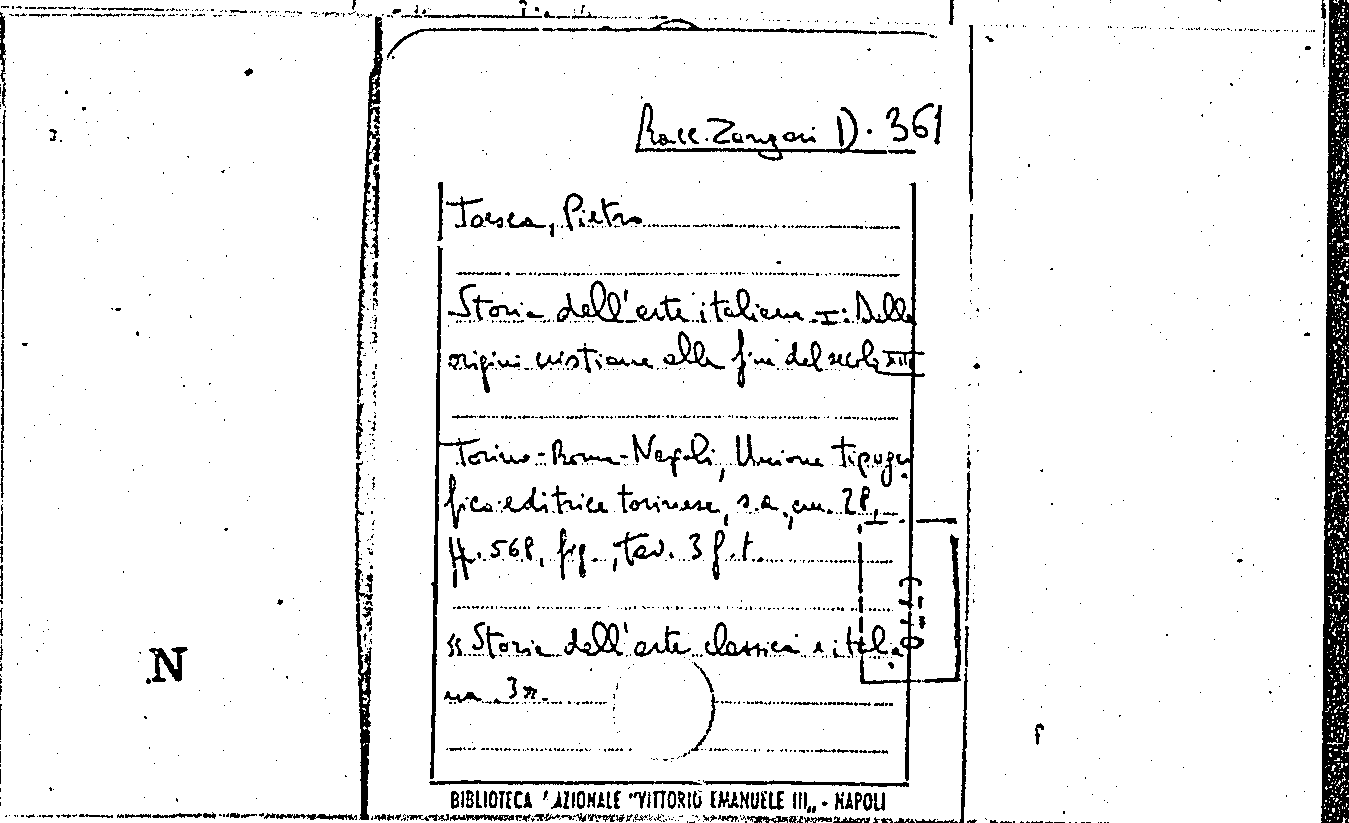 Racc. Zangari D. 361
Toesca, Pietro
Storia dell'arte italiana. I: Dalle
origini cristiane alla fine del secolo XIII
Torino-Roma-Napoli, Unione tipogra
fico-editrice torinese, s.a., cm. 28,
pp. 568, fig., tav. 3 f.t.
« Storia dell'arte classica e italia
na. 3».
N
BIBLIOTECA AZIONALE "VITTORIO EMANUELE III„ - NAPOLI